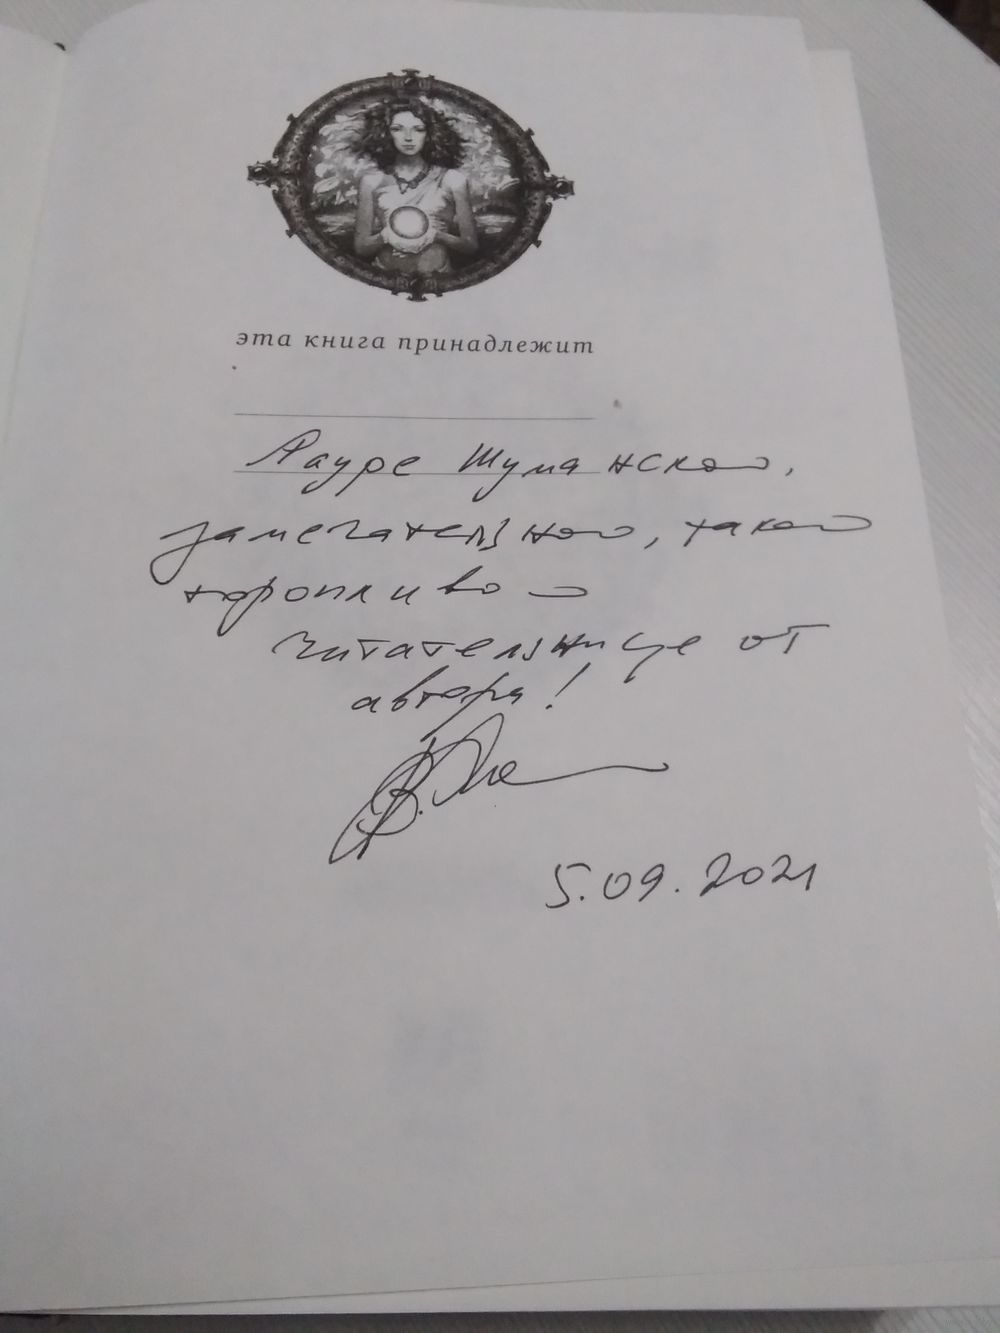 эта книга принадлежит
Лауре Шуманской,
замечательной, такой
торопливой
читательнице от
автора!
5.09.2021